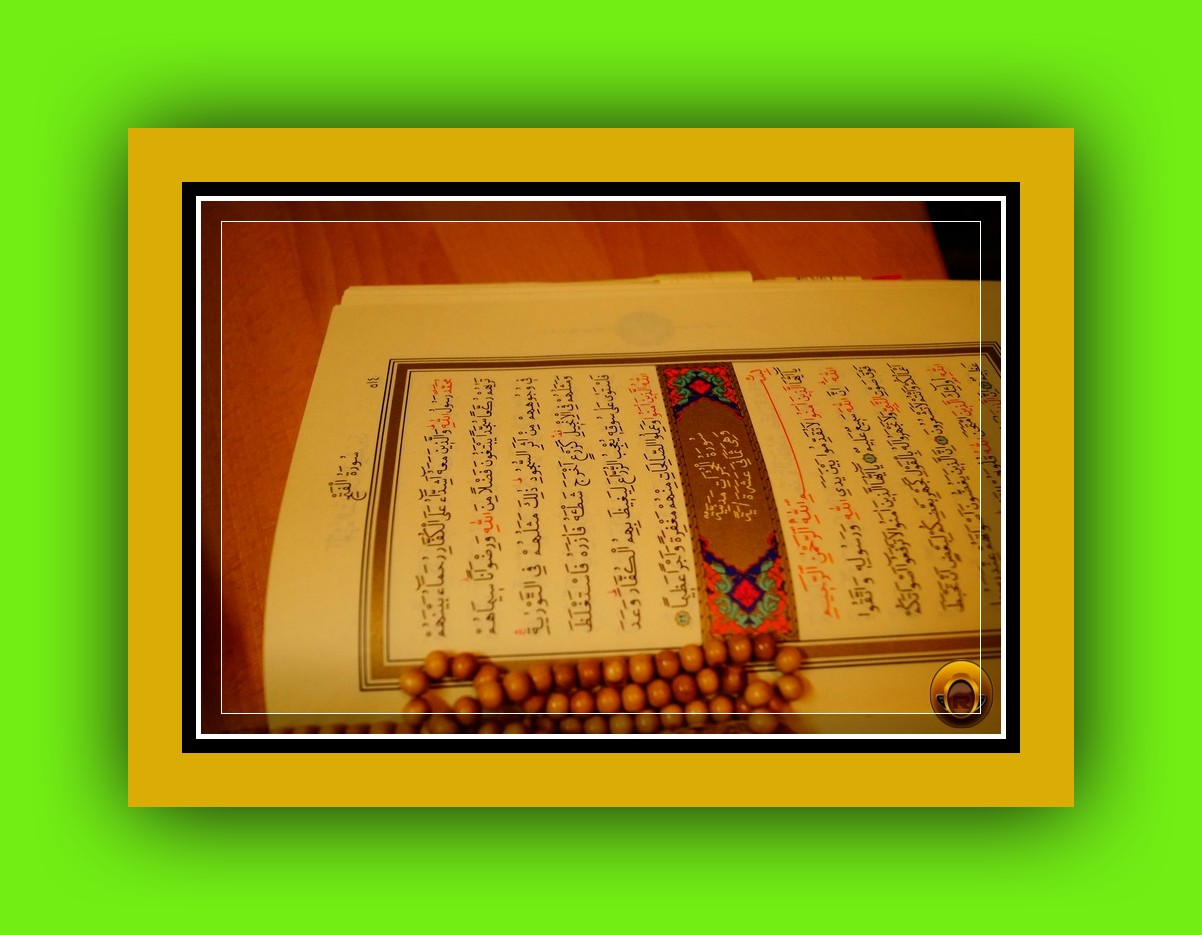 ٥١٤
سُورَةُ الْفَتْحِ
مُحَمَّدٌ رَسُولُ اللّٰهِ وَالَّذِينَ مَعَهُ أَشِدَّاءُ عَلَى الْكُفَّارِ رُحَمَاءُ بَيْنَهُمْ
تَرٰيهُمْ رُكَّعًا سُجَّدًا يَبْتَغُونَ فَضْلًا مِنَ اللّٰهِ وَرِضْوَانًا سِيمَاهُمْ
فِي وُجُوهِهِمْ مِنْ أَثَرِ السُّجُودِ ذٰلِكَ مَثَلُهُمْ فِي التَّوْرٰيةِ
وَمَثَلُهُمْ فِي الْإِنْجِيلِ كَزَرْعٍ أَخْرَجَ شَطْئَهُ فَآزَرَهُ فَاسْتَغْلَظَ
فَاسْتَوٰى عَلٰى سُوقِهِ يُعْجِبُ الزُّرَّاعَ لِيَغِيظَ بِهِمُ الْكُفَّارَ وَعَدَ
اللّٰهُ الَّذِينَ اٰمَنُوا وَعَمِلُوا الصَّالِحَاتِ مِنْهُمْ مَغْفِرَةً وَأَجْرًا عَظِيمًا ٢٩
سُورَةُ الْحُجُرَاتِ مَدَنِيَّةٌ
وَهِيَ ثَمَانِيَ عَشْرَةَ آيَةً
بِسْمِ اللّٰهِ الرَّحْمٰنِ الرَّحِيمِ
يَا أَيُّهَا الَّذِينَ اٰمَنُوا لَا تُقَدِّمُوا بَيْنَ يَدَيِ اللّٰهِ وَرَسُولِهِ وَاتَّقُوا
اللّٰهَ إِنَّ اللّٰهَ سَمِيعٌ عَلِيمٌ ١ يَا أَيُّهَا الَّذِينَ اٰمَنُوا لَا تَرْفَعُوا أَصْوَاتَكُمْ
فَوْقَ صَوْتِ النَّبِيِّ وَلَا تَجْهَرُوا لَهُ بِالْقَوْلِ كَجَهْرِ بَعْضِكُمْ لِبَعْضٍ أَنْ تَحْبَطَ